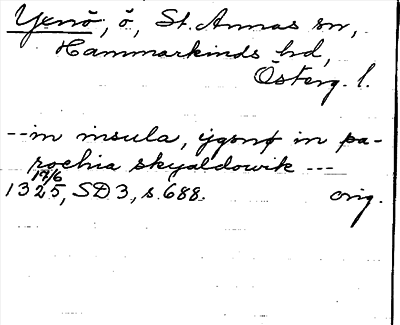 Yenö, ö, St. Annas sn,
Hammarkinds hd,
Österg. l.
--in insula, ygonø in pa-
rochia skyaldowik ---
17/6
1325, SD 3, s. 688. orig.